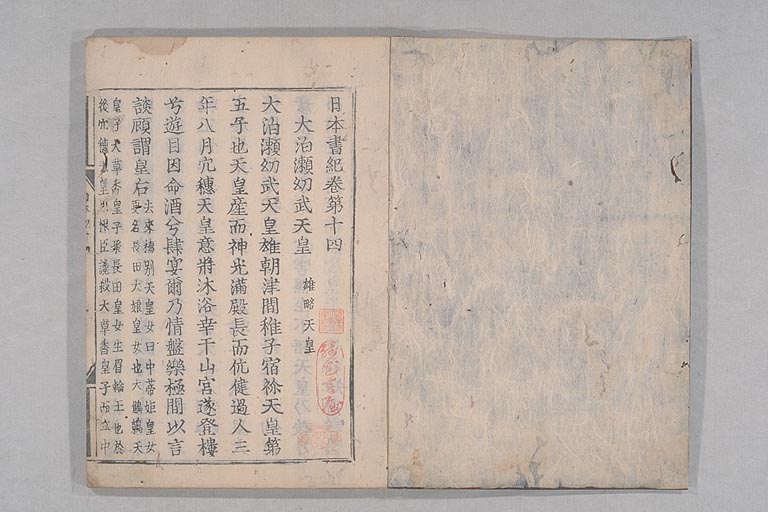 日本書紀卷第十四
大泊瀬幼武天皇 雄略天皇
大泊瀬幼武天皇雄朝津間稚子宿祢天皇第
五子也天皇産而神光滿殿長而伉健過人三
年八月穴穗天皇意將沐浴幸于山宮遂登樓
兮遊目因命酒兮肆宴爾乃情盤樂極間以言
談顧謂皇右
去來穗別天皇女曰中蒂姫皇女
更名長田大娘皇女也大鷦鷯天
皇子大草香皇子娶長田皇女生眉輪王也於
後穴穗天皇用根臣讒殺大草香皇子而立中